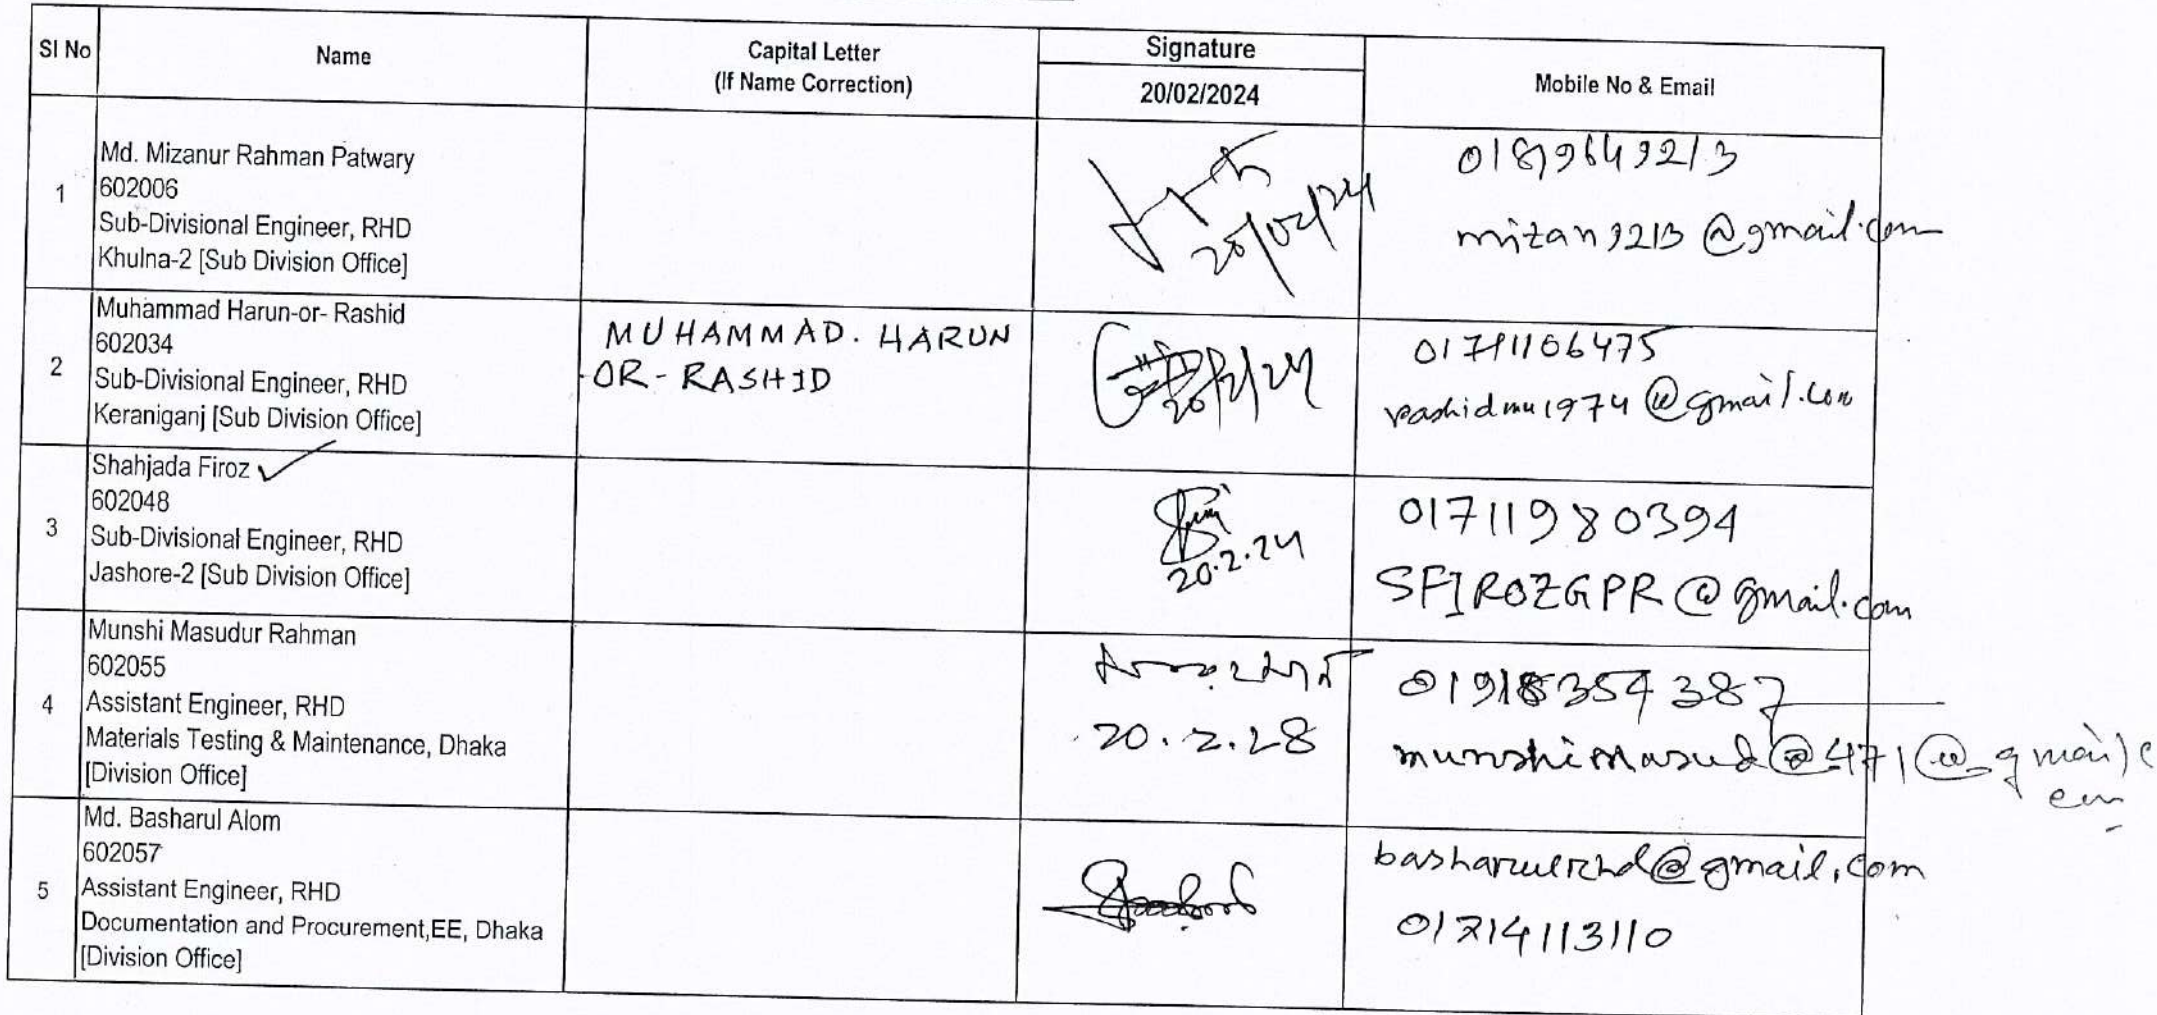 Sl No
Name
Capital Letter
(If Name Correction)
Signature
20/02/2024
Mobile No & Email
1
Md. Mizanur Rahman Patwary
602006
Sub-Divisional Engineer, RHD
Khulna-2 [Sub Division Office]
20/02/24
mizan9213@gmail.com
2
Muhammad Harun-or- Rashid
602034
Sub-Divisional Engineer, RHD
Keraniganj [Sub Division Office]
MUHAMMAD. HARUN
-OR-RASHID
20/2/24
01711106475
rashidmu1974@gmail.com
3
Shahjada Firoz
602048
Sub-Divisional Engineer, RHD
Jashore-2 [Sub Division Office]
20.2.24
01711980394
SFIROZGPR@gmail.com
4
Munshi Masudur Rahman
602055
Assistant Engineer, RHD
Materials Testing & Maintenance, Dhaka
[Division Office]
20.2.28
01918354387
5
Md. Basharul Alom
602057
Assistant Engineer, RHD
Documentation and Procurement,EE, Dhaka
[Division Office]
basharulrhd@gmail.com
01714113110